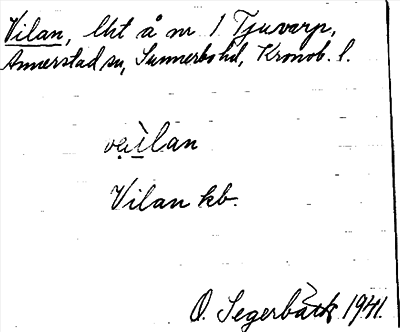 Vilan, lht å nr 1 Tjuvarp,
Annerstad sn, Sunnerbo hd, Kronob. l.
vẹìlan
Vilan kb.
O. Segerbäck 1941.